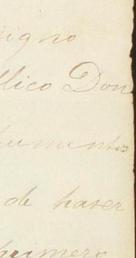 signo
blico Don
humentos
de haser
numero